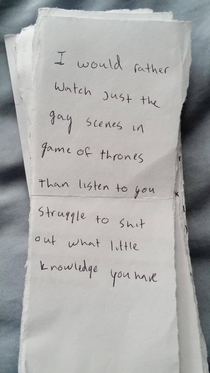 I would rather
watch just the
gay scenes in
game of thrones
Than listen to you
struggle to shit
out what little
knowledge you have